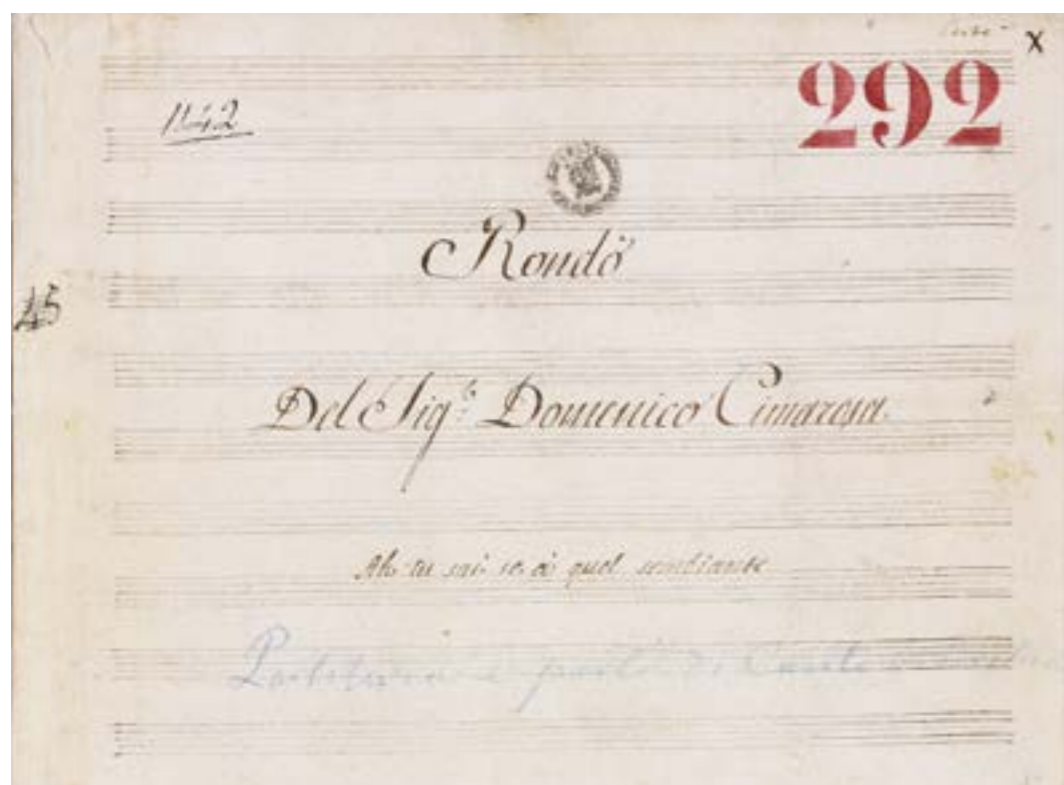 292
X
1142
Rondò
45
Del Sigr. Domenico Cimarosa
Ah tu sai se a quel sembiante
Partitura e parti di Canto